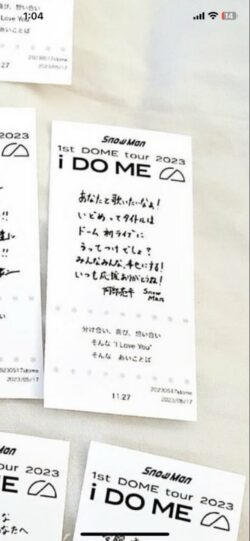 1:04
14
喜び、想い合い
"I Love You"
20230517sdome
2023/05/17
11.27
DOME tour 2023
DO ME
2023/05/17
Snow Man
1st DOME tour 2023
i DO ME
あなたと歌いたいなぁ!
いどめってタイトルは
ドーム初ライブに
うってつけでしょ?
みんなみんな、幸せにする!
いつも応援ありがとうね!
阿部亮平 Snow
Man
分け合い、喜び、想い合い
そんな "I Love You"
そんな あいことば
11.27
20230517sdome
2023/05/17
Snow Man
1st DOME tour 2023
i DO ME
Man
tour 2023
ME